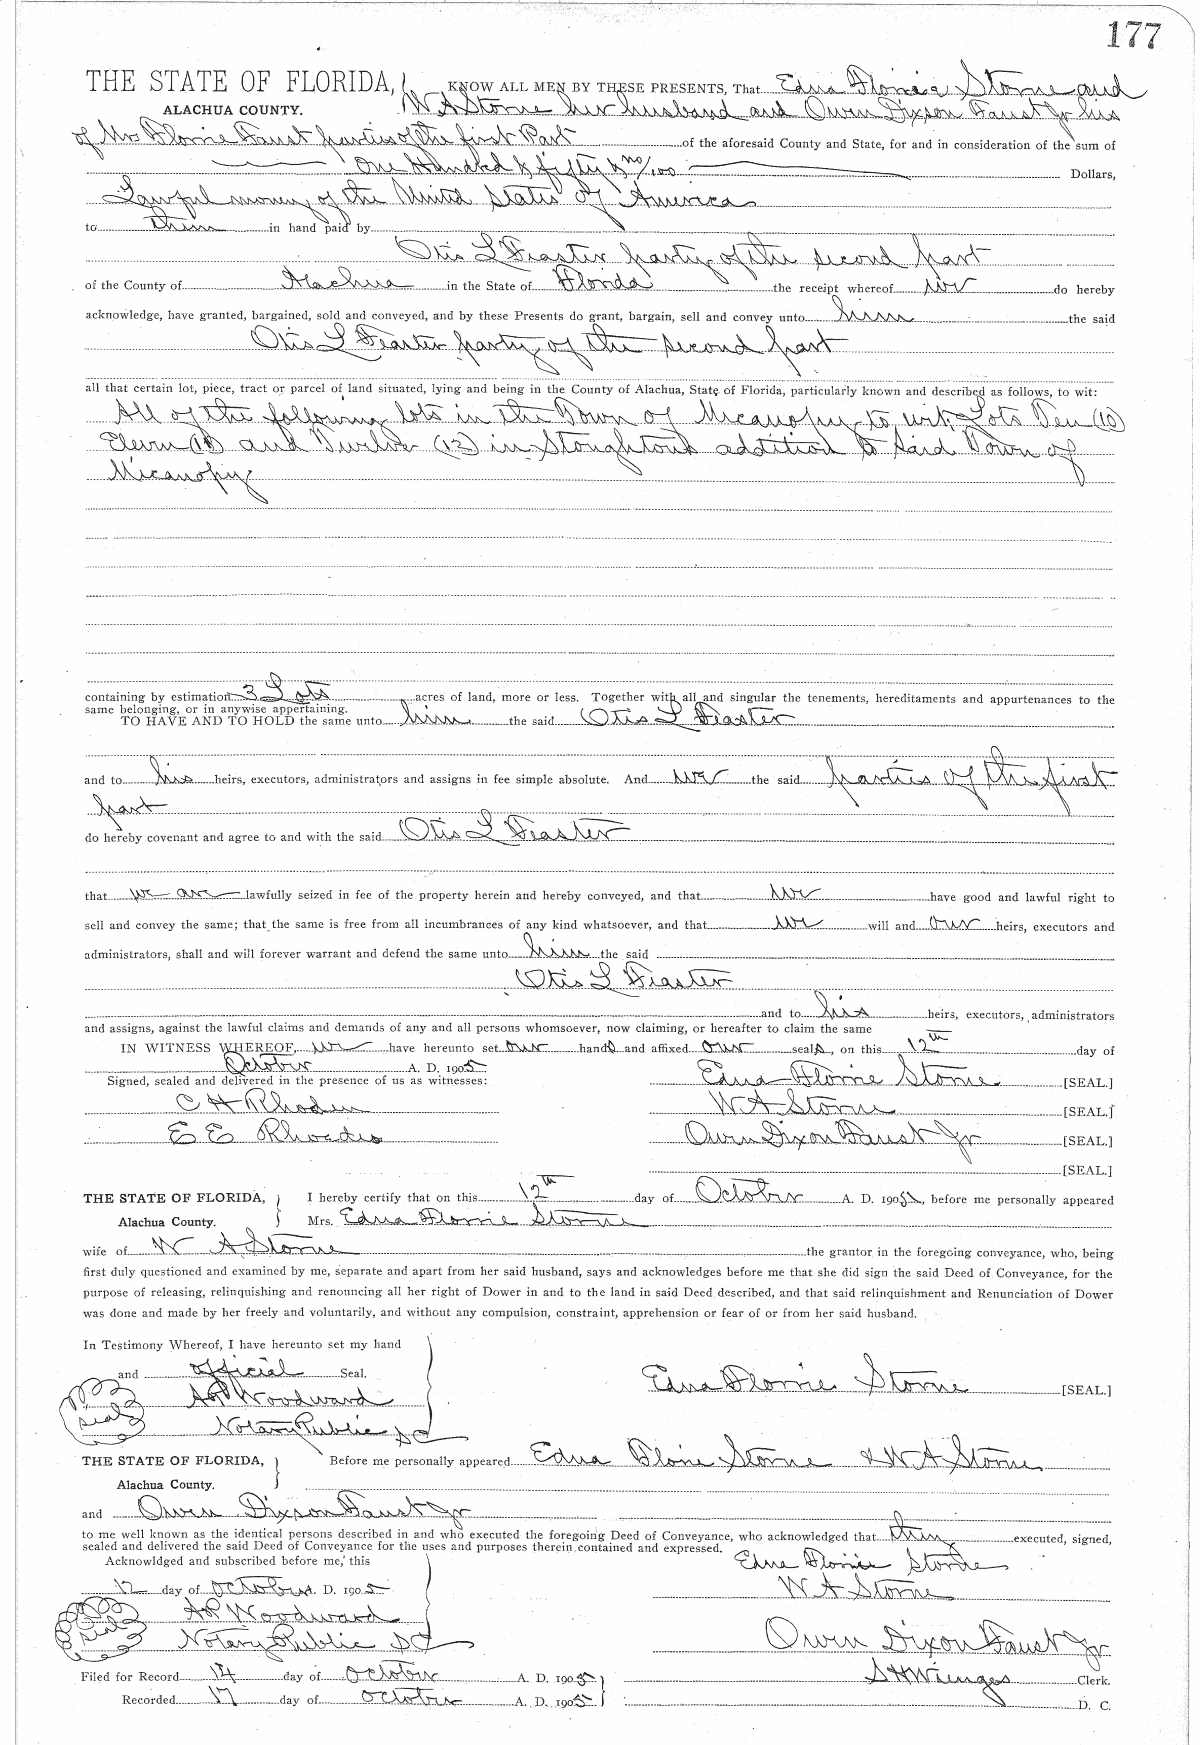 177
THE STATE OF FLORIDA, KNOW ALL MEN BY THESE PRESENTS, That Edna Florrie Storne and
ALACHUA COUNTY. W A Storne her husband and Owen Dixson Faust Jr his
of Mrs Florrie Faust parties of the first Part of the aforesaid County and State, for and in consideration of the sum of
One Hundred & fifty & no/100 Dollars,
Lawful money of the United States of America
to them in hand paid by
Otis L Feaster party of the second part
of the County of Alachua in the State of Florida the receipt whereof we do hereby
acknowledge, have granted, bargained, sold and conveyed, and by these Presents do grant, bargain, sell and convey unto him the said
Otis L Feaster party of the second part
all that certain lot, piece, tract or parcel of land situated, lying and being in the County of Alachua, State of Florida, particularly known and described as follows, to wit:
All of the following lots in the Town of Micanopy to wit. Lots Ten (10)
Eleven (11) and Twelve (12) in Stoughtons addition to Said Town of
Micanopy
containing by estimation 3 Lots acres of land, more or less. Together with all and singular the tenements, hereditaments and appurtenances to the
same belonging, or in anywise appertaining.
TO HAVE AND TO HOLD the same unto him the said Otis L Feaster
and to his heirs, executors, administrators and assigns in fee simple absolute. And we the said parties of the first
part
do hereby covenant and agree to and with the said Otis L Feaster
that we are lawfully seized in fee of the property herein and hereby conveyed, and that we have good and lawful right to
sell and convey the same; that the same is free from all incumbrances of any kind whatsoever, and that we will and our heirs, executors and
administrators, shall and will forever warrant and defend the same unto him the said
Otis L Feaster
and to his heirs, executors, administrators
and assigns, against the lawful claims and demands of any and all persons whomsoever, now claiming, or hereafter to claim the same
IN WITNESS WHEREOF, we have hereunto set our hands and affixed our seals, on this 12th day of
October A. D. 1905
Signed, sealed and delivered in the presence of us as witnesses: Edna Florrie Storne [SEAL.]
C H Rhoden W A Storne [SEAL.]
E E Rhoades Owen Dixon Faust Jr [SEAL.]
[SEAL.]
THE STATE OF FLORIDA, I hereby certify that on this 12th day of October A. D. 1905, before me personally appeared
Alachua County. Mrs. Edna Florrie Storne
wife of W A Storne the grantor in the foregoing conveyance, who, being
first duly questioned and examined by me, separate and apart from her said husband, says and acknowledges before me that she did sign the said Deed of Conveyance, for the
purpose of releasing, relinquishing and renouncing all her right of Dower in and to the land in said Deed described, and that said relinquishment and Renunciation of Dower
was done and made by her freely and voluntarily, and without any compulsion, constraint, apprehension or fear of or from her said husband.
In Testimony Whereof, I have hereunto set my hand
and official Seal.
Edna Florrie Storne [SEAL.]
A P Woodward
seal
Notary Public SC
THE STATE OF FLORIDA, Before me personally appeared Edna Florie Storne & W A Storne
Alachua County.
and Owen Dixson Faust Jr
to me well known as the identical persons described in and who executed the foregoing Deed of Conveyance, who acknowledged that they executed, signed,
sealed and delivered the said Deed of Conveyance for the uses and purposes therein contained and expressed.
Acknowldged and subscribed before me, this Edna Florrie Storne
12 day of October A. D. 1905 W A Storne
A P Woodward
seal
Notary Public SC Owen Dixon Faust Jr
Filed for Record 14 day of October A. D. 1905 S H Wienges Clerk.
Recorded 17 day of October A. D. 1905 D. C.